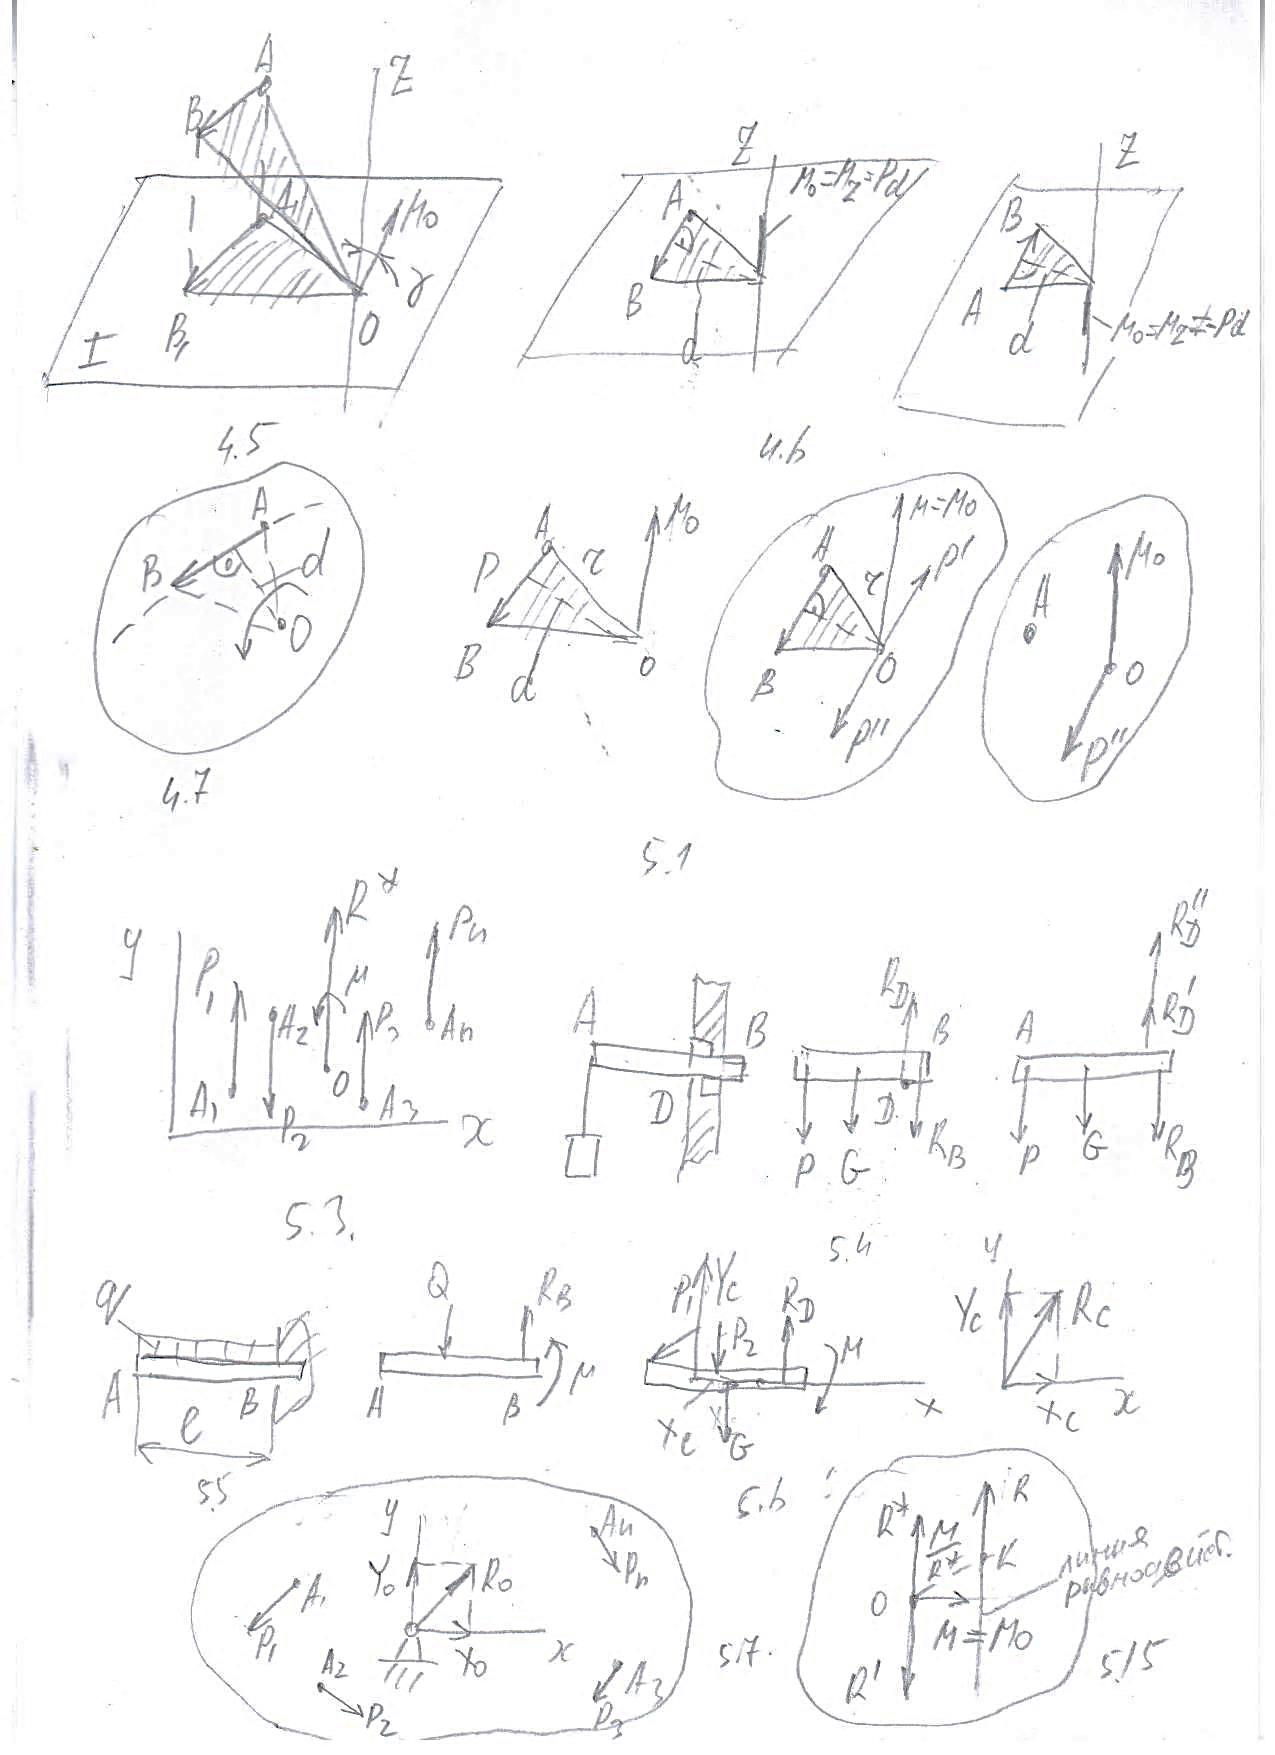 A Z
B
A₁ M₀
γ
B₁ O
I
4.5
Z M₀=M_Z=Pd
A
B
d
4.6
Z
B
A
d M₀=M_Z=-Pd
A
B d
O
4.7
A M₀
P r
B d O
M=M₀
A r P'
B O
P''
A M₀
O
P''
5.1
y R* Pn
P₁ M
A₂ P₃ An
A₁ O A₃
P₂ x
5.3.
A B
D
R_D B
D
P G R_B
R_D''
A R_D'
P G R_B
5.4
q
A B
l
5.5
Q R_B
A B M
P₁ Y_C R_D
P₂ M
X_C G x
y
Y_C R_C
X_C x
5.6
y An
Y₀ R₀ Pn
A₁
P₁ X₀ x
A₂ A₃
P₂ P₃
5.7.
R* M/R* R
K линия
равнодейст.
O
M=M₀
R'
5.15